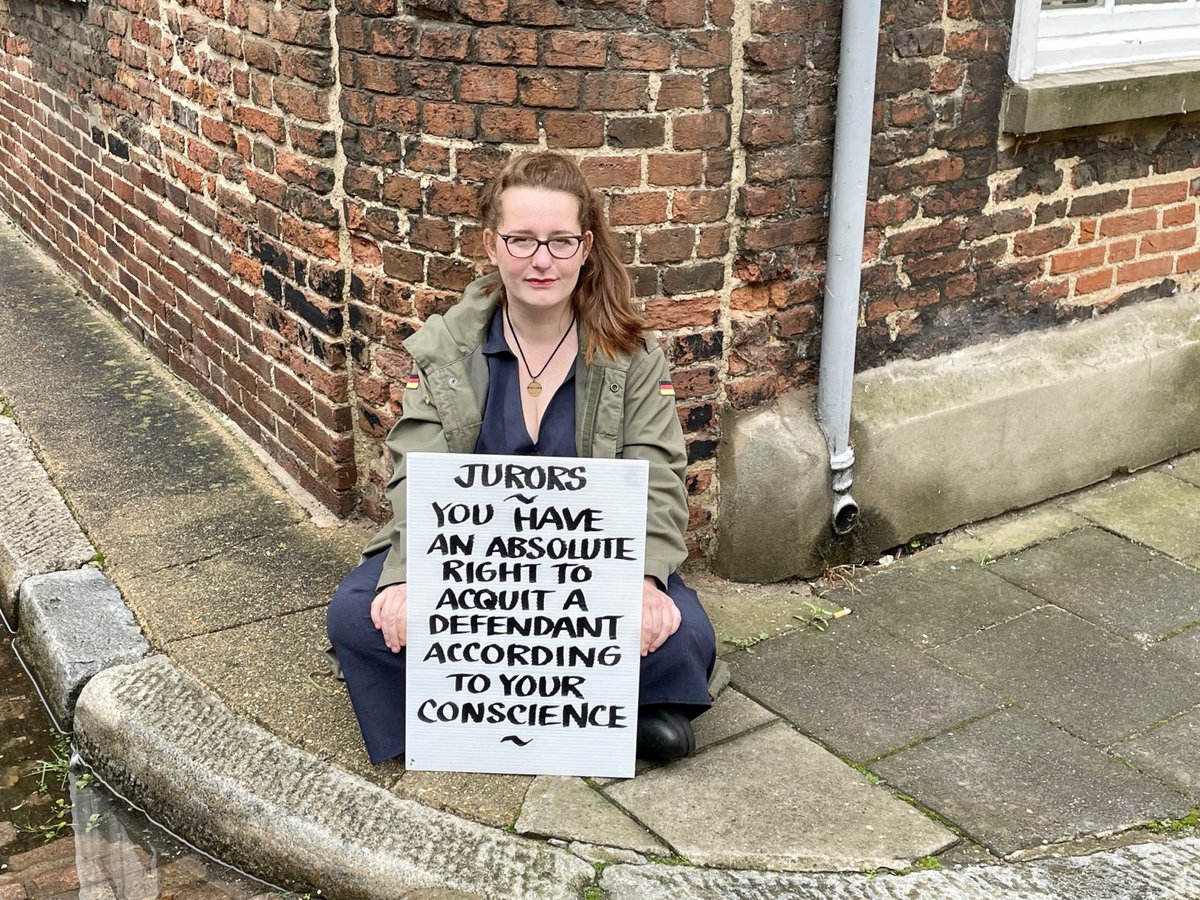 JURORS
~
YOU HAVE
AN ABSOLUTE
RIGHT TO
ACQUIT A
DEFENDANT
ACCORDING
TO YOUR
CONSCIENCE
~